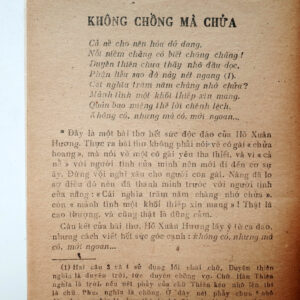 KHÔNG CHỒNG MÀ CHỬA
Cả nể cho nên hóa dở dang,
Nỗi niềm chàng có biết chăng chăng!
Duyên thiên chưa thấy nhô đầu dọc,
Phận liễu sao đà nảy nét ngang (1).
Cái nghĩa trăm năm chàng nhớ chửa?
Mảnh tình một khối thiếp xin mang!
Quản bao miệng thế lời chênh lệch,
Không có, nhưng mà có, mới ngoan...
* Đây là một bài thơ hết sức độc đáo của Hồ Xuân
Hương. Thực ra bài thơ không phải nói về cô gái « chửa
hoang », mà nói về một cô gái yêu tha thiết, vì « cả
nể » với người yêu của mình nên mới đi đến cơ sự
ấy. Đừng vội nghĩ xấu cho người con gái. Nàng đã lo
sợ điều đó nên đã thanh minh trước với người tình
của nàng: « Cái nghĩa trăm năm chàng nhớ chửa »,
con « mảnh tình một khối thiếp xin mang »! Thật là
cao thượng, và cũng thật là dũng cảm.
Câu kết của bài thơ, Hồ Xuân Hương lấy ý từ ca dao,
nhưng cách viết hết sức góc cạnh: không có, nhưng mà
có, mới ngoan...
(1) Hai câu 3 và 4 sử dụng lối chơi chữ. Duyên thiên
nghĩa là duyên trời, tức duyên chồng vợ. Chữ Hán Thiên
nghĩa là trời, nếu nét phẩy của chữ Thiên kéo lên thì thành
chữ Phu, nghĩa là chồng. Ở đây nét phẩy chưa